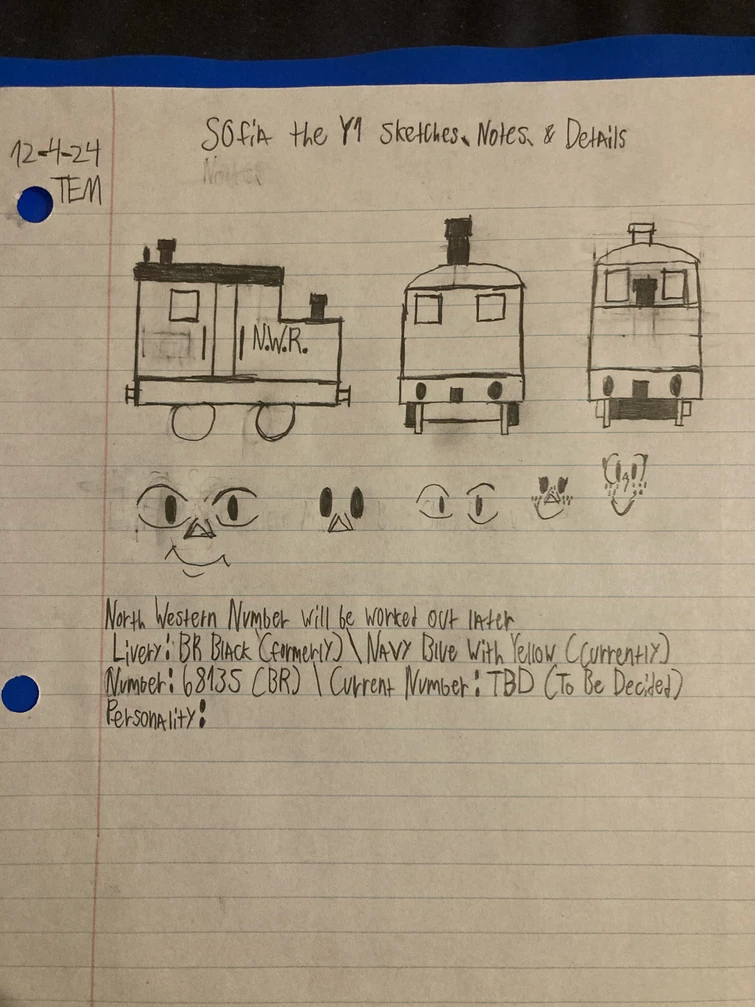 Sofia the Y1 Sketches, Notes, & Details
12-4-24
TEM
Notes
N.W.R.
North Western Number will be worked out later
Livery: BR Black (formerly) \ Navy Blue with Yellow (Currently)
Number: 68135 (BR) \ Current Number: TBD (To Be Decided)
Personality: